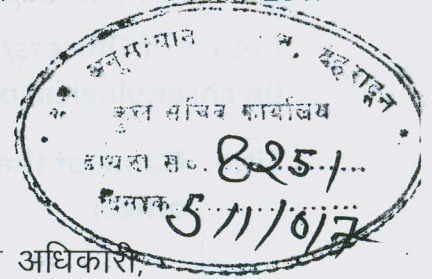 अनुसंधान
देहरादून
कुल सचिव कार्यालय
डायरी सं. 8251
दिनांक 5/11/07
अधिकारी,